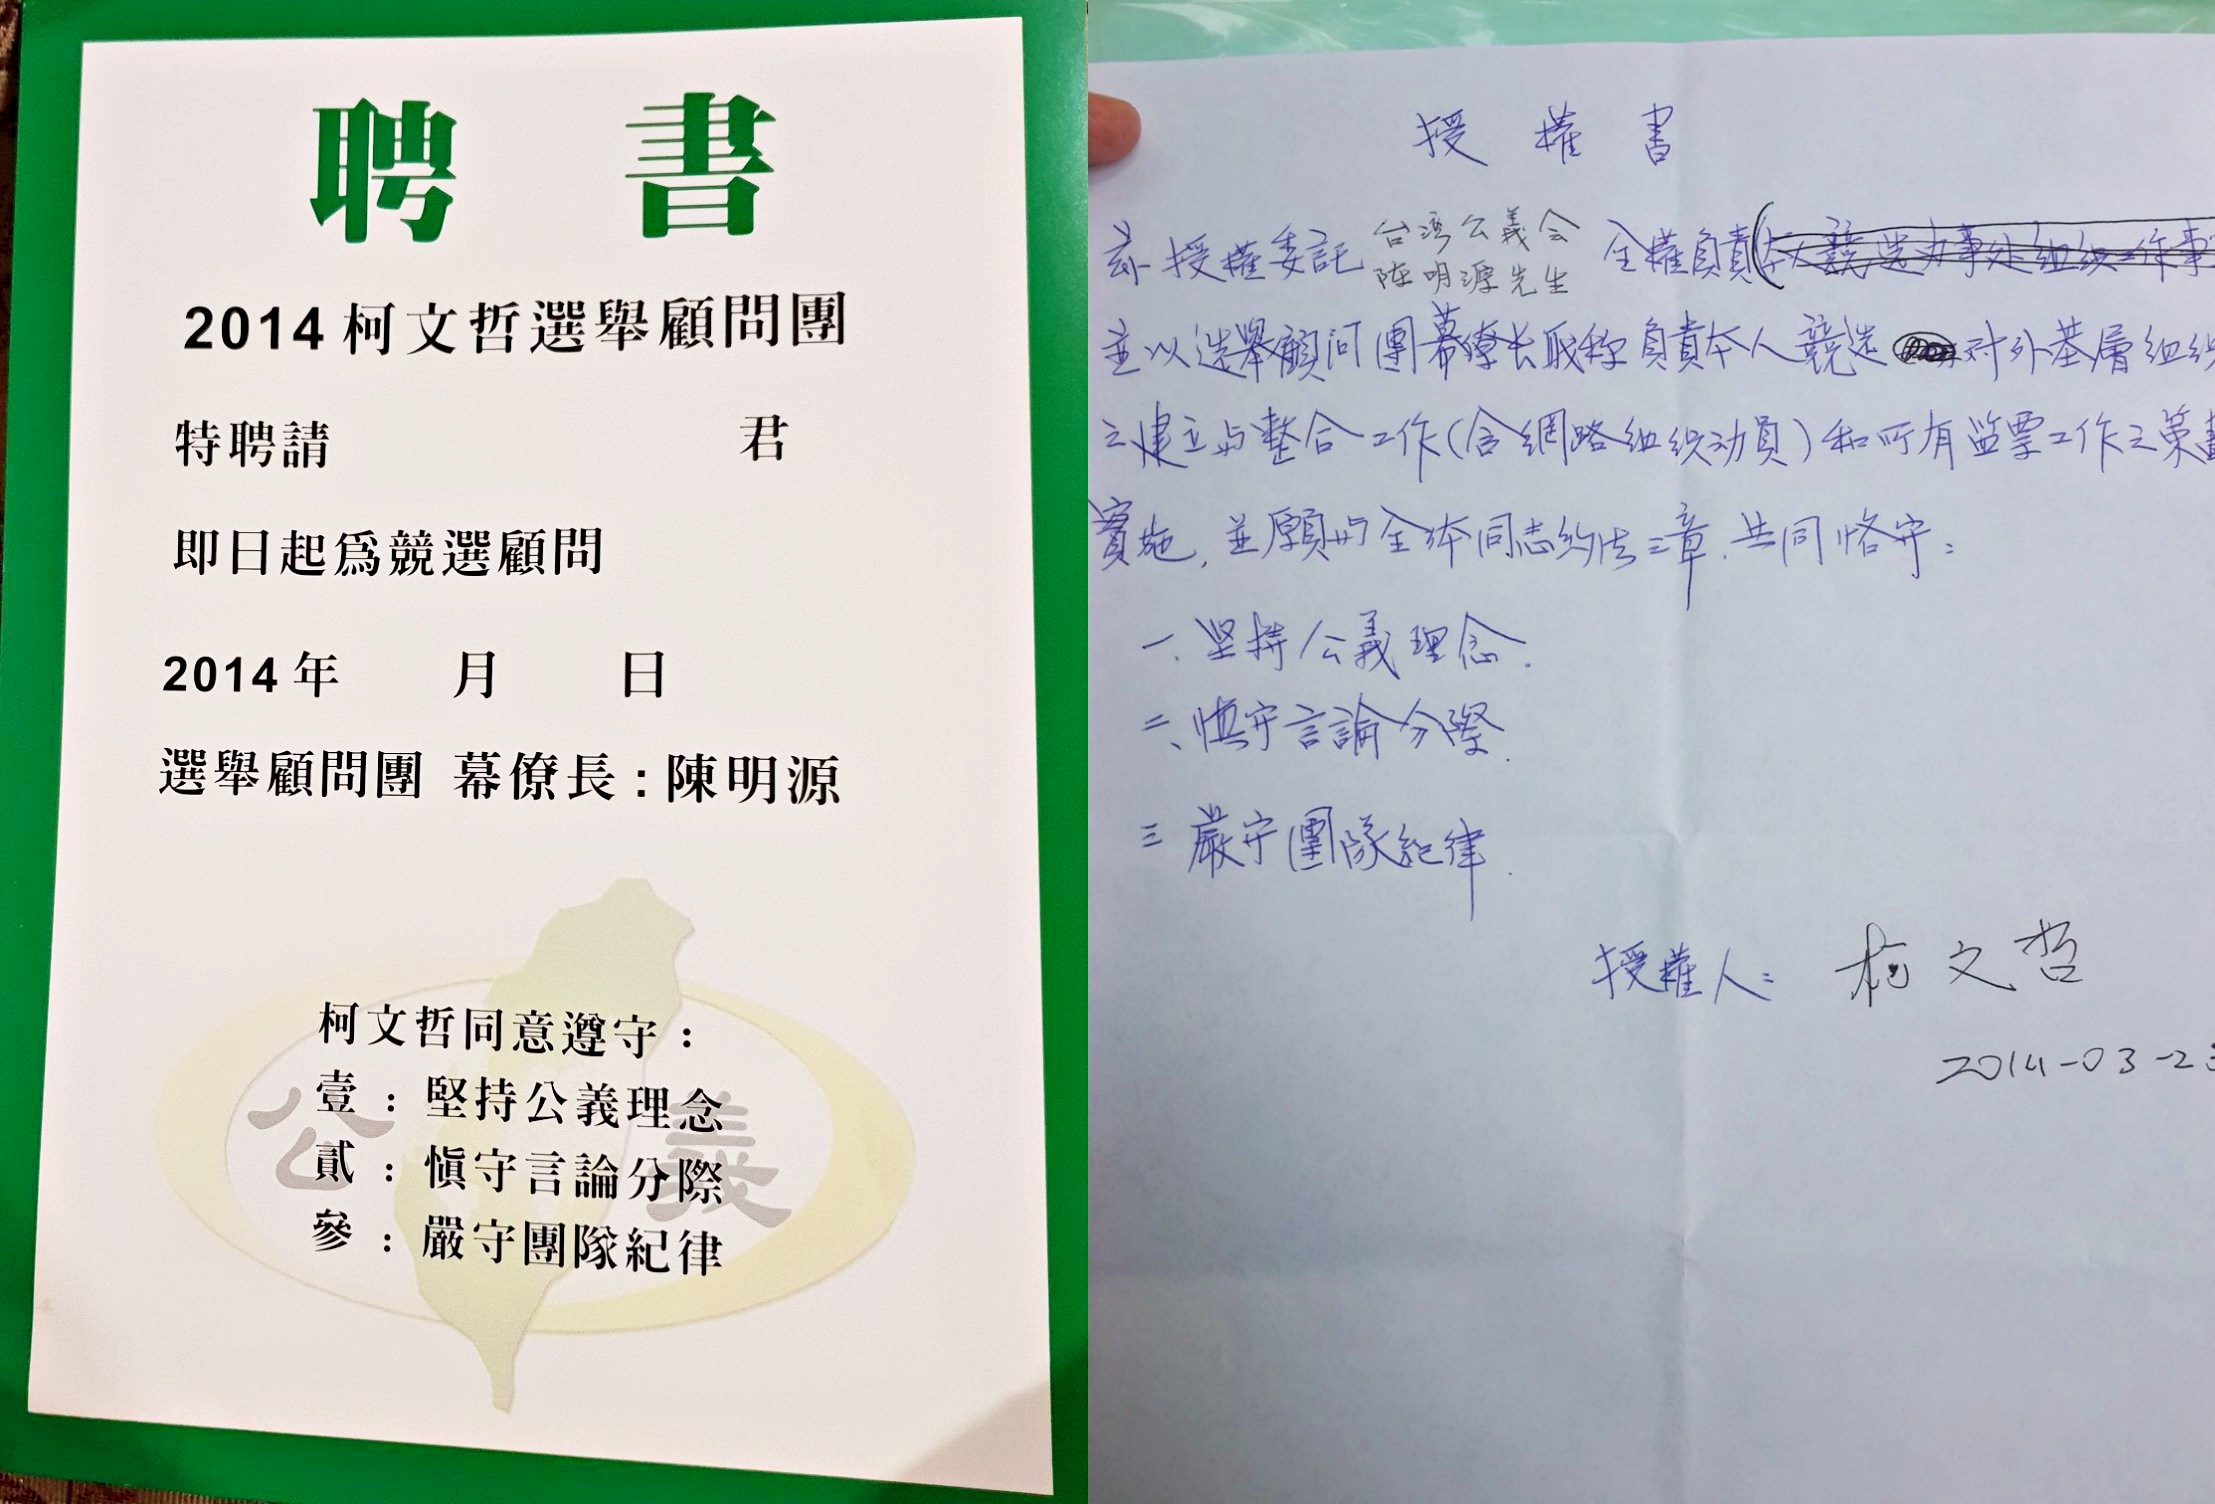 聘書
2014 柯文哲選舉顧問團
特聘請 君
即日起為競選顧問
2014 年 月 日
選舉顧問團 幕僚長:陳明源
公義
柯文哲同意遵守:
壹:堅持公義理念
貳:慎守言論分際
參:嚴守團隊紀律
授權書
茲授權委託 台湾公義会 全權負責(本人競选办事处组织工作事
陈明源先生
並以选舉顧问團幕僚长职称負責本人競选 对外基層组织
之建立与整合工作(含網路组织动員)和所有监票工作之策劃
實施,並願与全体同志约法三章.共同恪守:
一、坚持公義理念.
二、慎守言論分際.
三、嚴守團隊紀律.
授權人: 柯文哲
2014-03-23